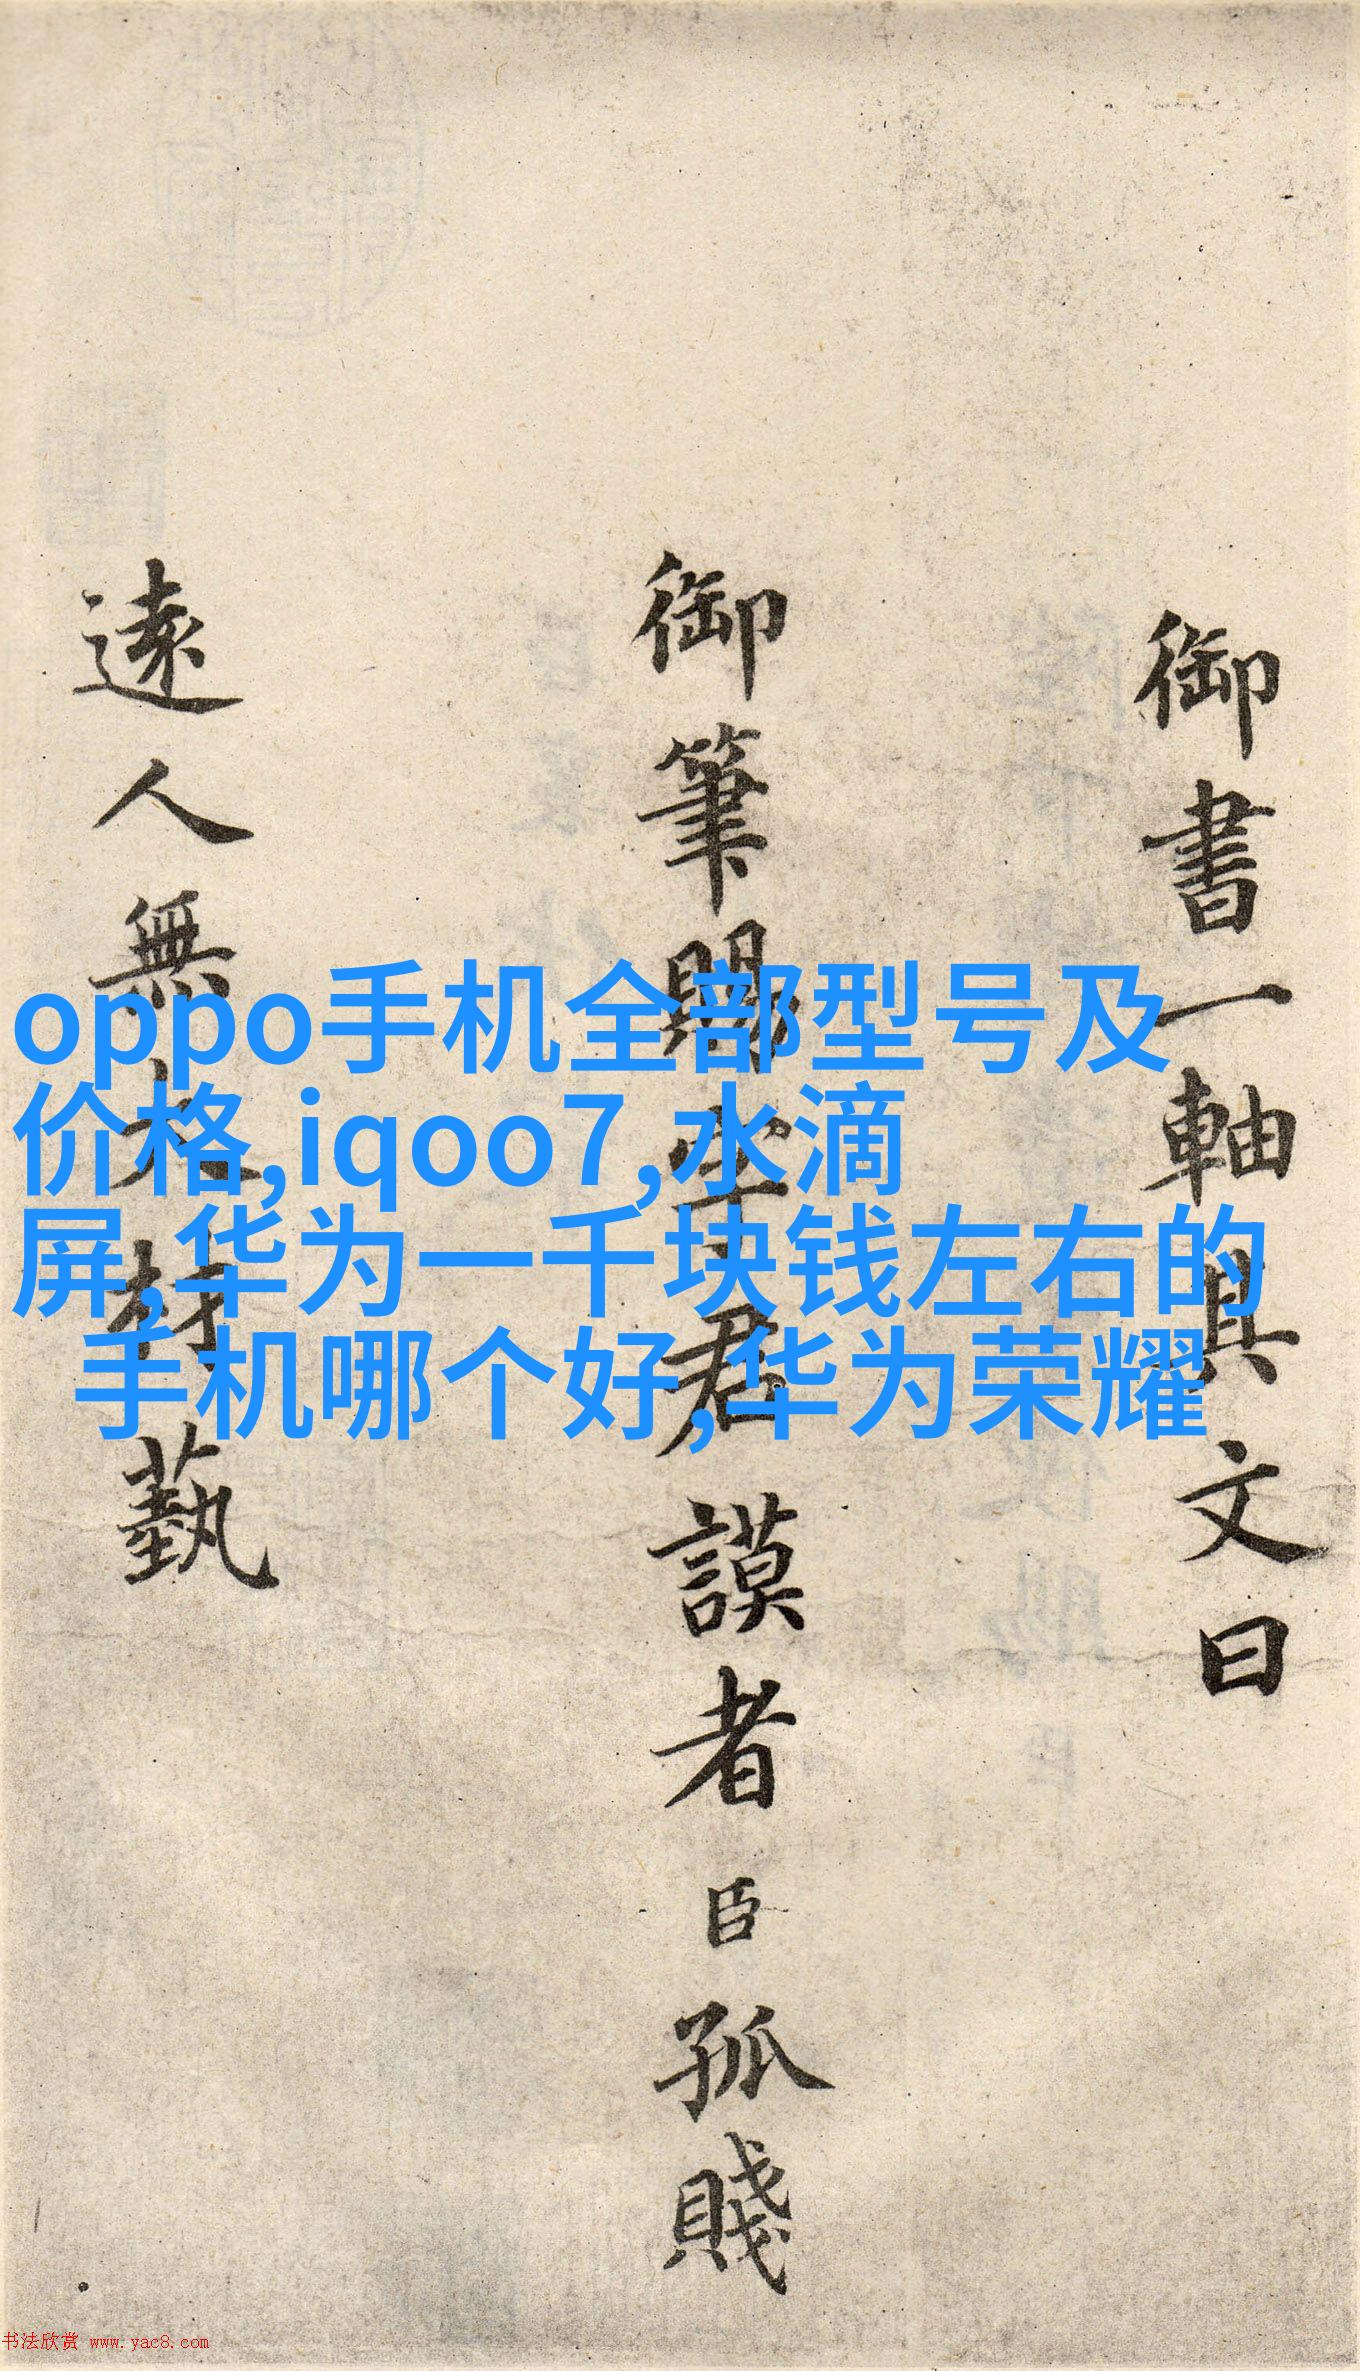 oppo手机全部型号及
价格,iqoo7,水滴
屏,华为一千块钱左右的
手机哪个好,华为荣耀
御書一軸其文曰
御筆賜字君謨者臣孤賤
遠人無大材藝
书法欣赏 www.yac8.com